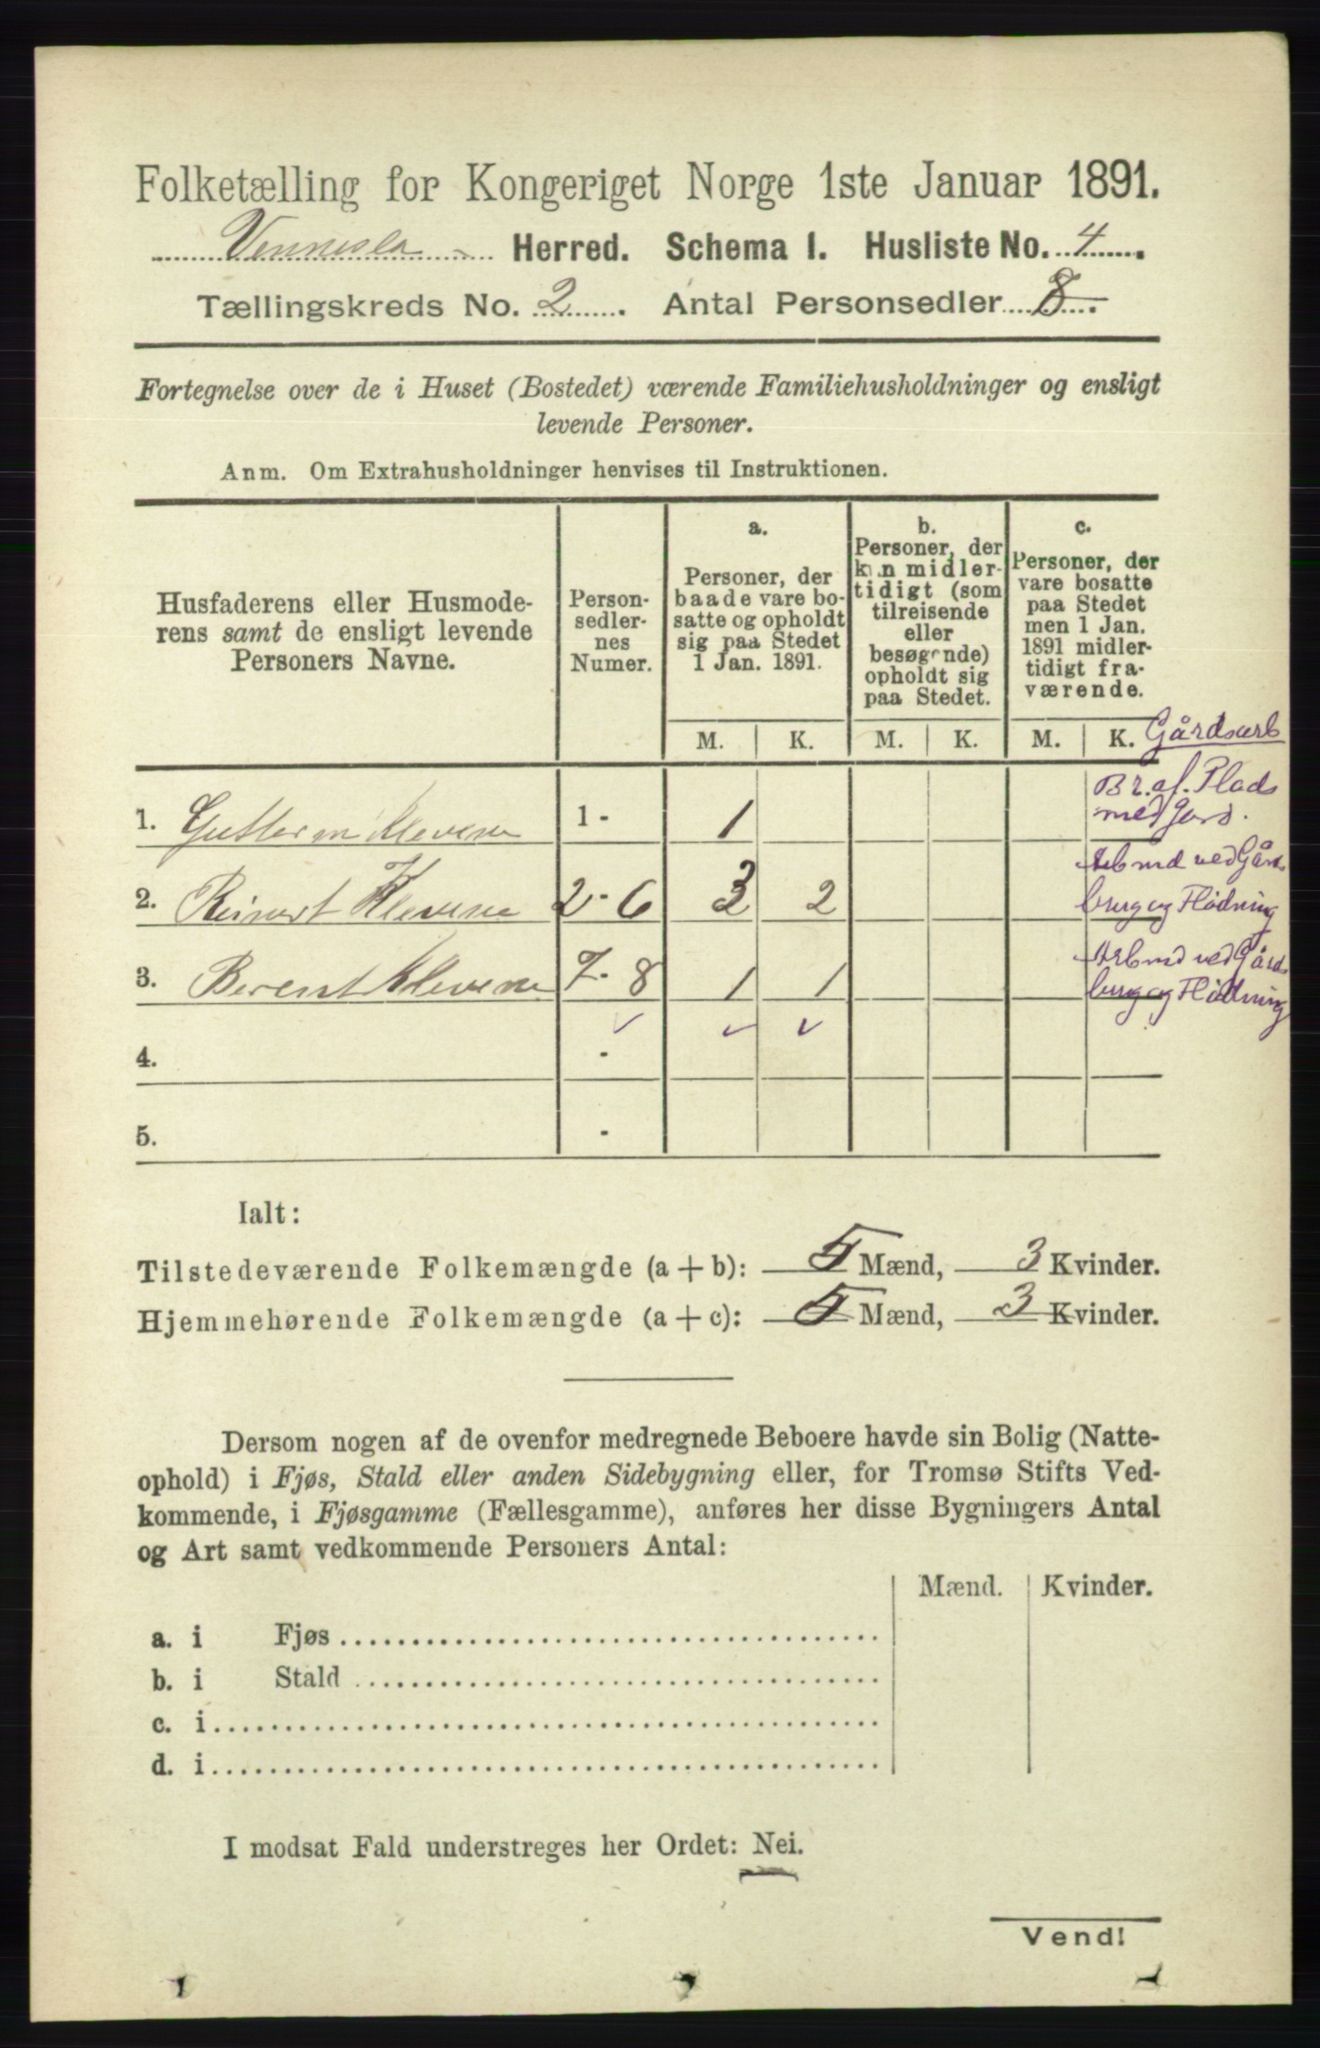 Folketælling for Kongeriget Norge 1ste Januar 1891.
Vennesla Herred. Schema I. Husliste No. 4
Tællingskreds No. 2. Antal Personsedler 8.
Fortegnelse over de i Huset (Bostedet) værende Familiehusholdninger og ensligt
levende Personer.
Anm. Om Extrahusholdninger henvises til Instruktionen.
Husfaderens eller Husmode-
rens samt de ensligt levende
Personers Navne.
Person-
sedler-
nes
Numer.
a.
Personer, der
baade vare bo-
satte og opholdt
sig paa Stedet
1 Jan. 1891.
b.
Personer, der
kun midler-
tidigt (som
tilreisende
eller
besøgende)
opholdt sig
paa Stedet.
c.
Personer, der
vare bosatte
paa Stedet
men 1 Jan.
1891 midler-
tidigt fra-
værende.
M. K. M. K. M. K. Gårdsarb
1. Guttorm Klevene 1 - 1 Br. af. Plads
med Jord.
2. Reinert Klevene 2 - 6 3 2 Arbmd ved Gårds
brug og Flødning
3. Berent Klevene 7 - 8 1 1 Arbmd ved Gårds
brug og Flødning
4. -
5. -
Ialt:
Tilstedeværende Folkemængde (a + b): 5 Mænd, 3 Kvinder.
Hjemmehørende Folkemængde (a + c): 5 Mænd, 3 Kvinder.
Dersom nogen af de ovenfor medregnede Beboere havde sin Bolig (Natte-
ophold) i Fjøs, Stald eller anden Sidebygning eller, for Tromsø Stifts Ved-
kommende, i Fjøsgamme (Fællesgamme), anføres her disse Bygningers Antal
og Art samt vedkommende Personers Antal:
Mænd. Kvinder.
a. i Fjøs
b. i Stald
c. i
d. i
I modsat Fald understreges her Ordet: Nei.
Vend!